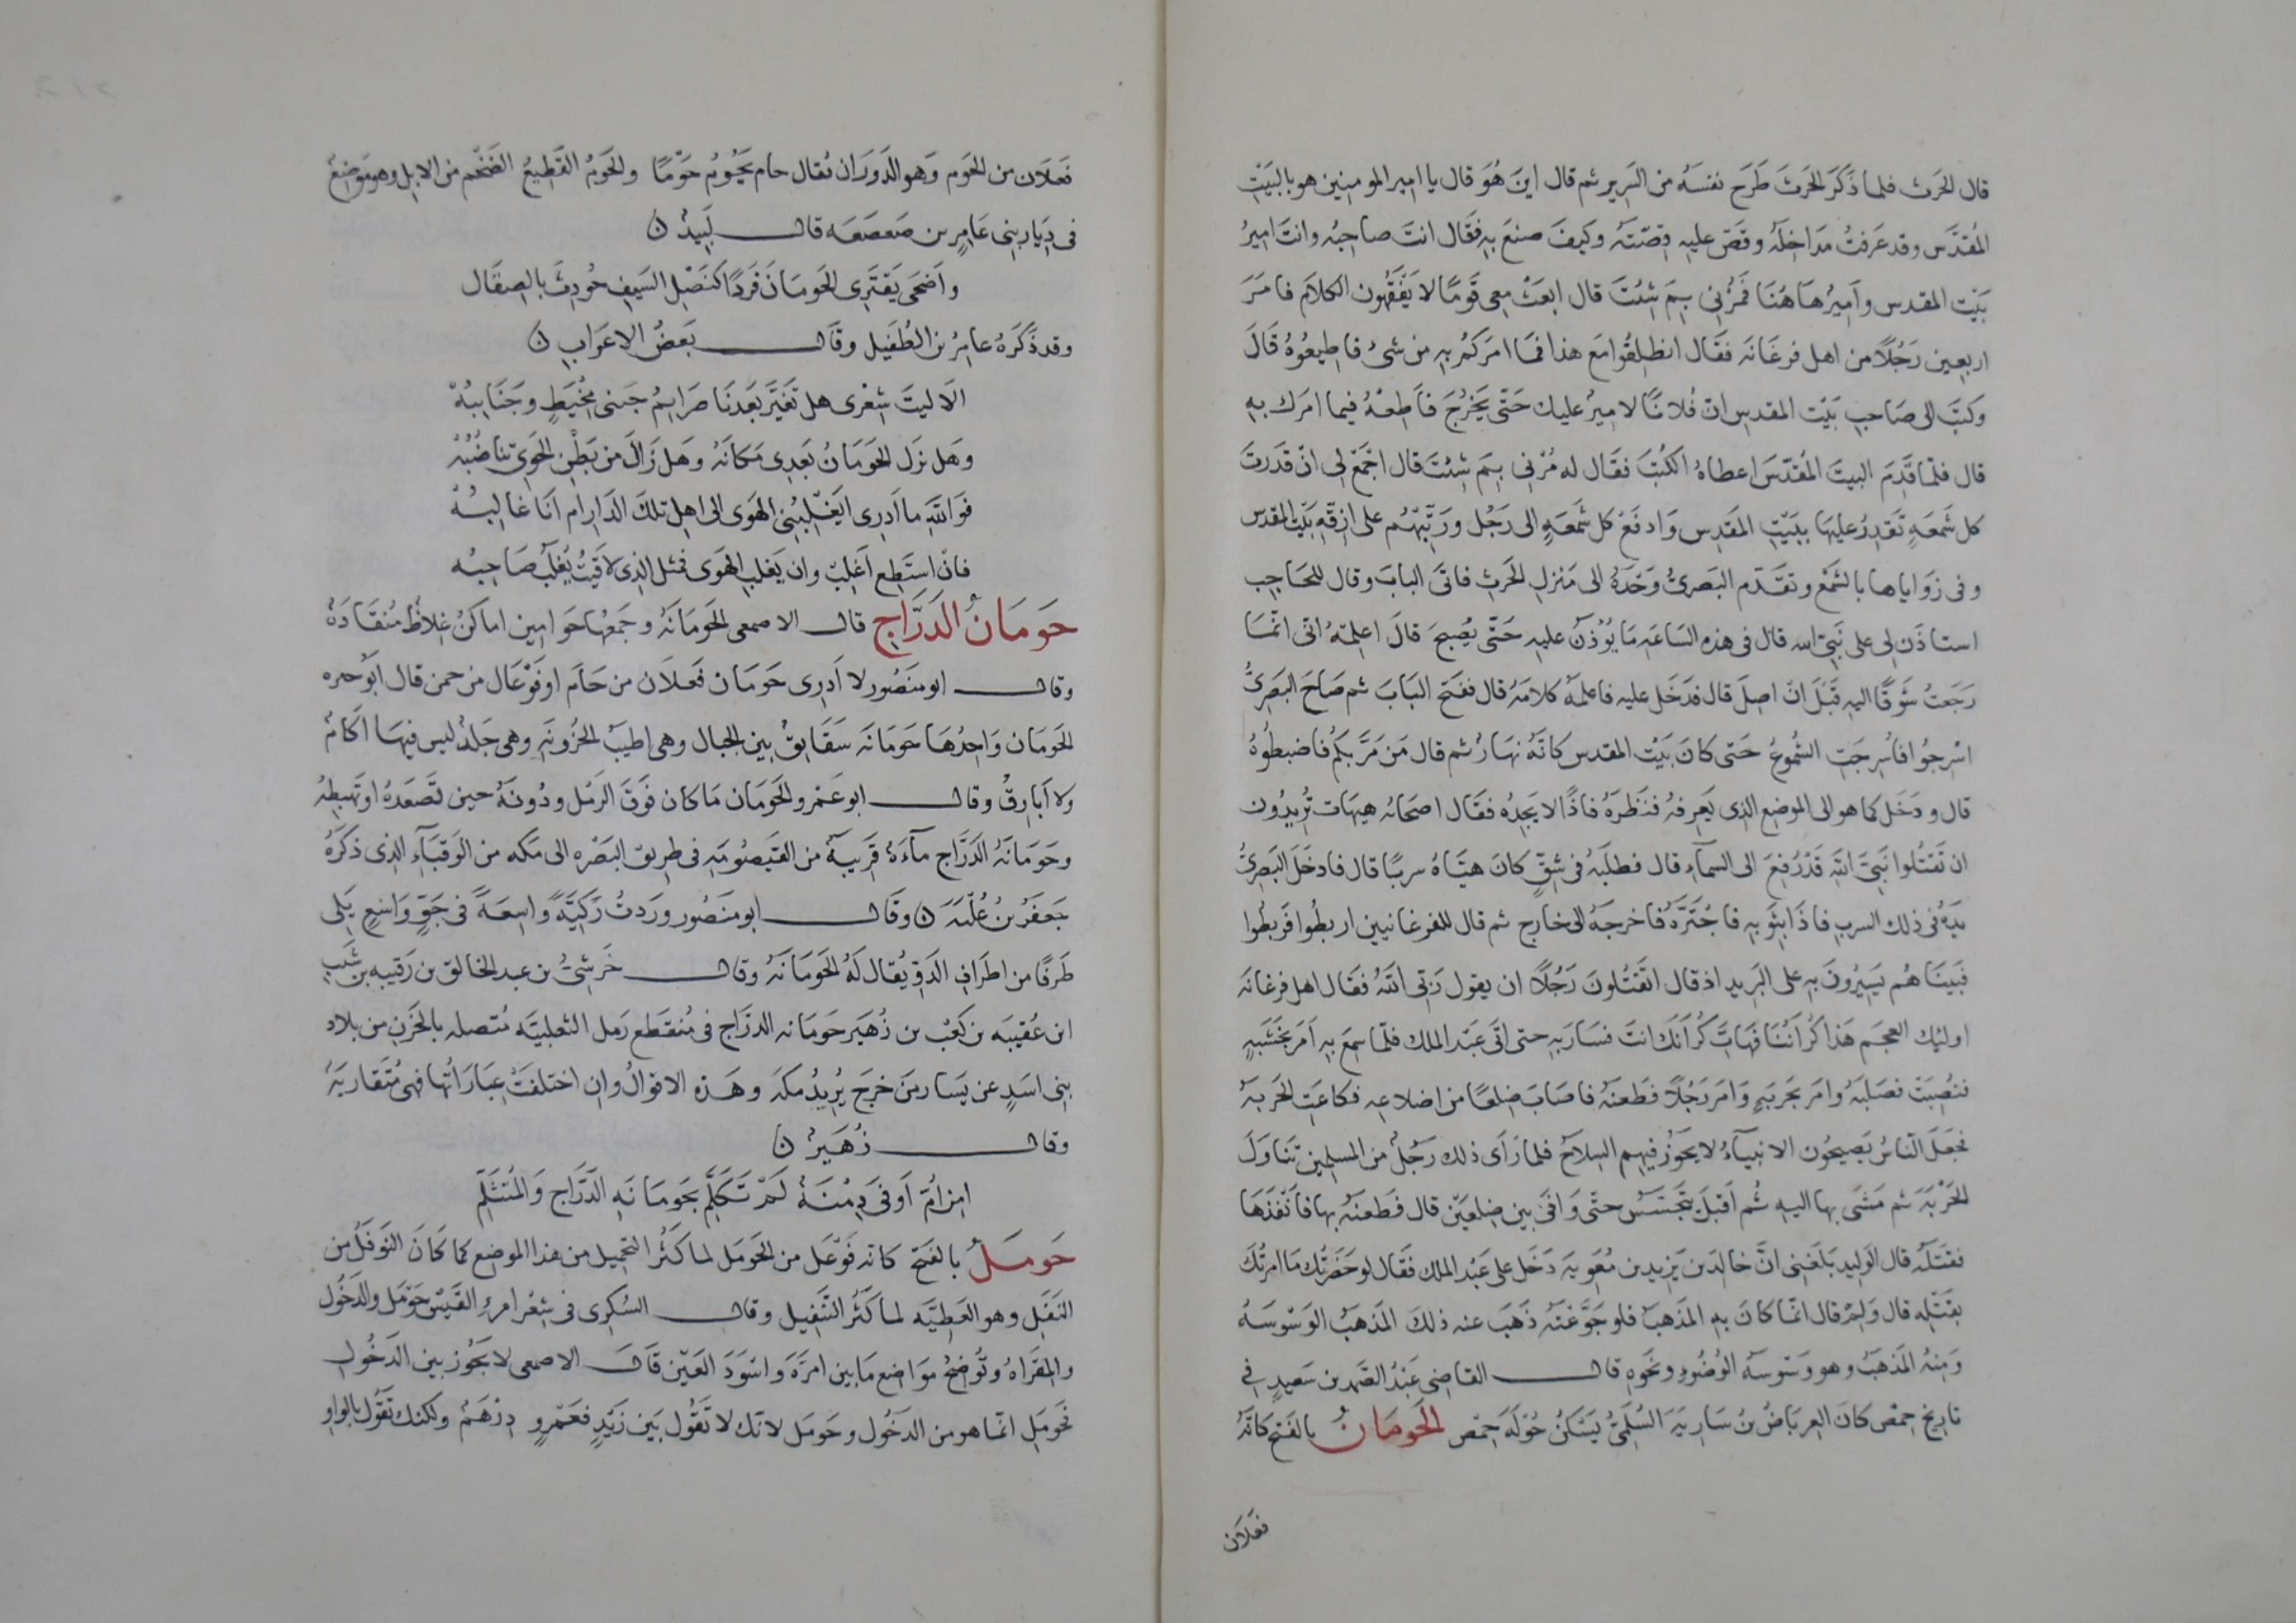 قال الحرث فلما ذَكَرَ الحرثَ طَرَح نفسَهُ من السَرير ثم قال اينَ هُوَ قال يا امير المومنين هو بالبَيْتِ
المُقدَّس وقد عَرفتُ مَدَاخِلَهُ وقصّ عليه قِصّتَهُ وكيفَ صنعَ بِهِ فقَال انتَ صاحِبُه وانتَ امِيرُ
بَيْت المقدس وامِيرُ هَاهُنَا فَمُرْنى بِمَ شِئتَ قال ابعَثْ معى قَومًا لا يَفْقَهُون الكلامَ فامَرَ
اربعين رَجُلاً من اهل فرغَانَه فقَال انطلِقُوا مَع هذا فما امَركُم بِهِ من شىْ فاطِيعُوهُ قَالَ
وكتبَ الى صَاحبِ بَيْت المقدسِ انّ فُلانًا لامِيرُ عليك حَتّى يَخرُجَ فأَطِعْهُ فيما امَرك بهِ
قال فلمّا قَدِمَ البيتَ المُقدّسَ اعطاهُ الكُتبَ فقَال له مُرْنى بِمَ شِئتَ قال اجْمَعْ لى انْ قَدَرتَ
كل شَمعَةٍ تقدِرُ عليهَا ببَيْتِ المَقدِس وَادفَعْ كل شَمعَةٍ الى رَجُل ورَتِّبْهُم على ازِقّةِ بَيْت المقدس
وفى زوَاياها بالشَمْع وتقَدّم البَصرىُّ وَحْدَهُ الى مَنزلِ الحَرثِ فاتَى البابَ وقال للحَاجِب
استاذَن لى على نَبِىّ الله قال فى هذه السَاعَه مَا يُوْذَنُ عليهِ حَتّى يُصْبحَ قالَ اعلِمْهُ انى انّما
رَجَعتُ شَوقًا اليهِ قَبْلَ انَ اصِلَ قال فدَخَل عليه فاعلمَهُ كلامَهُ قال ففَتح البَابَ ثم صَاحَ البَصرِىُّ
اسْرِجُوا فاُسرِجَتِ الشُموعُ حَتى كانَ بَيْت المقدس كانَّهُ نهَارُ ثم قال مَن مَرَّ بكُم فاضبِطُوهُ
قال ودَخَل كما هو الى الموضع الذى يَعرفُه فنَظَرهُ فاذَا لا يَجِدُه فقَال اصحَابُه هيهَات تُرِيدُون
ان تَقتُلوا نَبِىَّ اللهِ قَدْ رُفِعَ الى السمآءِ قال فطلَبَهُ فى شِقٍّ كانَ هيَّاهُ سربًا قال فادخَلَ البَصرِىُّ
يدَهُ فى ذلك السربِ فاذَا بثَوبِهِ فاجْتَرَّهُ فاخرجَهُ الى خارج ثم قال للفرغانيين اربطُوا فَربطُوا
فبَينَاهُم يَسِيرُونَ بِهِ على البَريد اذ قال اتَقتُلونَ رَجُلاً ان يقول رَبّى اللهُ فقَال اهل فرغانَه
اوليك العجَم هَذَا كُرْآنُنَا فهَاتِ كُرْآنَك انتَ فسَارَ بِهِ حتى اتَى عَبْدَ الملك فلمّا سِمعَ بِهِ اَمَر بخَشَبةٍ
فنُصِبَتْ فصَلبَهُ وامَر بحَربَةٍ وَامَر رَجُلاً فطَعنَهُ فاصَابَ ضِلعًا من اضلاعِه فكاعَتِ الحَربَهُ
فجَعَلَ النّاسُ يَصِيحُون الانبيآءُ لا يجوزُ فيهِم السِلاحُ فلما رَأى ذلك رَجُلٌ من المسلِمين تنَاوَلَ
الحَرْبَةَ ثم مَشَى بها اليهِ ثُم اَقبَلَ يتَجسَّسُ حتّى وَافَى بين ضِلعَيْن قال فطَعنَهُ بها فاَنْفَذَهَا
فقتَلهُ قال الوليد بَلغَنى انَّ خالدَ بن يَزيد بن مُعويَه دَخَل على عَبْد الملك فقَال لو حَضَرتُك مَا امَرتُكَ
بقَتْلِه قال وَلِمَ قال انّما كانَ بِهِ المَذهَبُ فلو جَوَّعْتَهُ ذَهَبَ عنه ذلكَ المَذهَبُ الوَسْوَسَهُ
وَمِنهُ المَذهَبُ وهو وَسْوسَهُ الوُضُوءِ ونَحوِهِ قال القاضِى عَبْدُ الصَمد بن سَعيدٍ فى
تاريخ حِمْص كانَ العِربَاضُ بنُ سَارِيَةَ السُلَمىُّ يَسْكنُ حُوْلَةَ حِمْص الحَومَانُ بالفَتح كانَّهُ
فعَلان
فَعَلَان من الحَوم وَهو الدَورَان يُقال حام يَحُومُ حَوْمًا والحَومُ القَطِيعُ الضَخْم من الابل وهو مَوضِعُ
فى دِيَار بنى عَامِر بن صَعصَعَه قال لَبِيدُ ن
واَضحَى يَقتَرِى الحَومَانَ فَردًا كنَصْلِ السَيفِ حُودِثَ بالصِقَال
وقد ذَكَرَهُ عامِرُ بن الطُفَيل وقَال بَعضُ الاعرَابِ ن
الَا ليتَ شِعْرى هل تغَيَّرَ بَعدَنَا صَرايمُ جَنبى مِخْيَطٍ وجَنَايبُهْ
وهَل نَزل الحَومَانُ بَعدِى مَكانَهُ وهَل زَالَ من بَطْنِ الحَوى تناضُبُهْ
فوَاللهِ ما اَدرِى ايَغْلِبُنى الهَوى الى اهلِ تلكَ الدَارِ ام اَنَا غالِبُهْ
فانْ استَطِع اَغلِبْ وان يَغلبِ الهَوى فمثل الذى لاقَيتُ يُغلَبُ صَاحِبُه
حَومَانُ الدَرَّاجِ قال الاصمعى الحَومَانَهُ وجَمعُهَا حَوامِين اماكنُ غِلاظُ مُنقَادَهُ
وقال ابو منَصُور لا اَدرى حَومَان فَعلَان من حَامَ او فَوْعَال من حمن قال ابو خيره
الحَومَان وَاحِدُهَا حَومَانَه شقَايقُ بين الجبال وهى اطيبُ الحُزُونَةِ وهى جَلَدُ ليس فيهَا اكَامُ
ولا اَبَارِقُ وقال ابو عَمْرو الحَومَان مَا كان فَوقَ الرَمْل ودُونَهُ حين تَصعَدُه او تَهبِطهُ
وحَومَانَهُ الدَرَّاج مآءَهُ قَرِيبَهُ من القَيصُومَةِ فى طريق البَصْره الى مكه من الوَقبَآءِ الذى ذكَرَهُ
جَعفَرُ بنُ عُلْبَهَ ن وقَال ابو منَصُور ورَدتُ رَكِيَّهً واسِعَهً فى جَوٍّ وَاسعٍ يَلى
طَرفًا من اطرَافِ الدَوِّ يُقال لَهُ الحَومَانَهُ وقال خَرشِىُّ بن عبد الخالق بن رَقيبه بن شَبيبِ
ابن عُقيبَه بن كَعْب بن زُهَير حَومَانه الدرّاج فى مُنقَطع رَمل الثعلبيّه مُتصله بالحَزْنِ من بلاد
بنى اسَدٍ عن يَسار مَن خرجَ يُريدُ مكهَ وهَذه الاقوالُ وان اختلفَتْ عِبَارَاتُها فهى مُتقَاربَهُ
وقال زُهَيرُ ن
امِن اُمّ اَوفَى دِمْنَهُ لَمْ تَكَلَّم بحَومَانَهِ الدَّرَّاج وَالمُتَثَلَّمِ
حَومَلُ بالفَتح كانه فَوْعَل من الحَومَل لما كثُر التحميل من هذا الموضع كما كانَ النَوفَلُ من
النَفَل وهو العَطِيّه لما كثُر التَّنفِيل وقال السُكرى فى شِعْر امرءِ القَيْس حَوْمَل والدَخُول
والمِقراهُ وتُوضِحُ مَواضِع مَا بين امرَة واسْودَ العَيْن قَالَ الاصمعى لا يَجُوز بين الدَخُولِ
فَحَوملِ انّما هو من الدَخُول وحَومَل لانّك لا تَقُول بَين زَيْدٍ فعَمْرٍو دِرْهَمُ ولكنك تَقُول بالواو